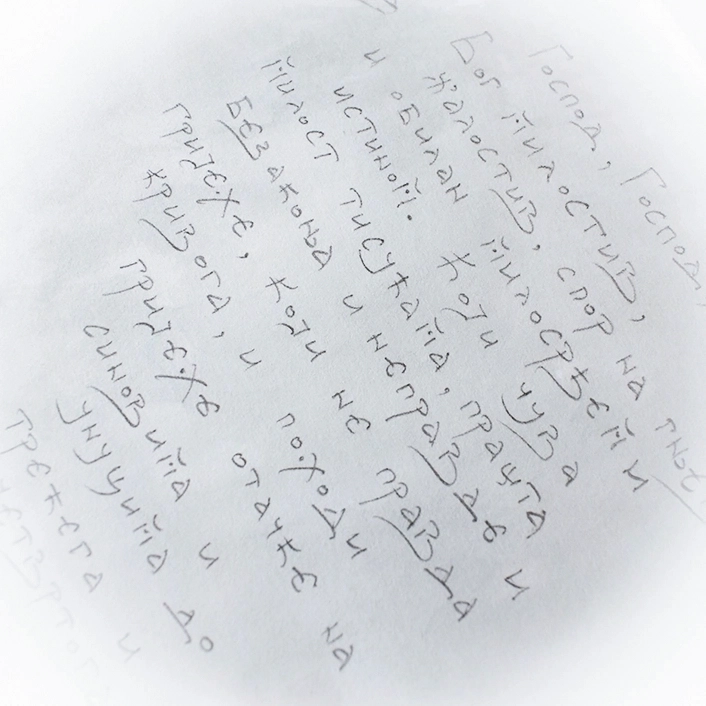 Господ, Господ,
Бог милостив,
жалостив, спор на гње
и обилан милосрђем и
истином. Који чува
милост тисућама, прашта
безакоња и неправде и
гријехе, који не правда
кривога, и походи
гријехе отачке на
синовима и
унуцима до
трећега и